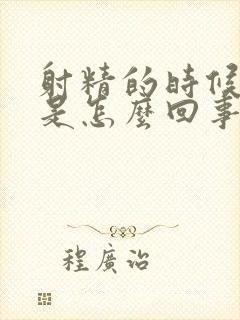 射精的時候
是怎麼回事
程廣治